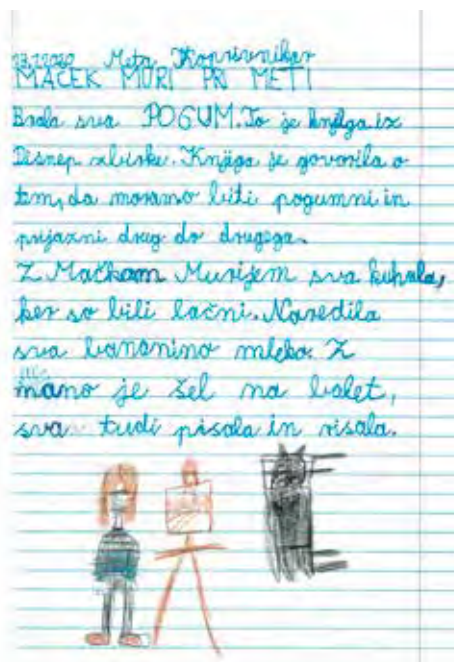 Meta Koprivnikar
MAČEK MURI PRI METI
Brala sva POGUM. To je knjiga iz
Disnep zbirke. Knjiga je govorila o
tem, da moramo biti pogumni in
prijazni drug do drugega.
Z Mačkam Murijem sva kuhala,
ker so bili lačni. Naredila
sva bananino mleko. Z
mano je šel na balet,
sva tudi pisala in risala.